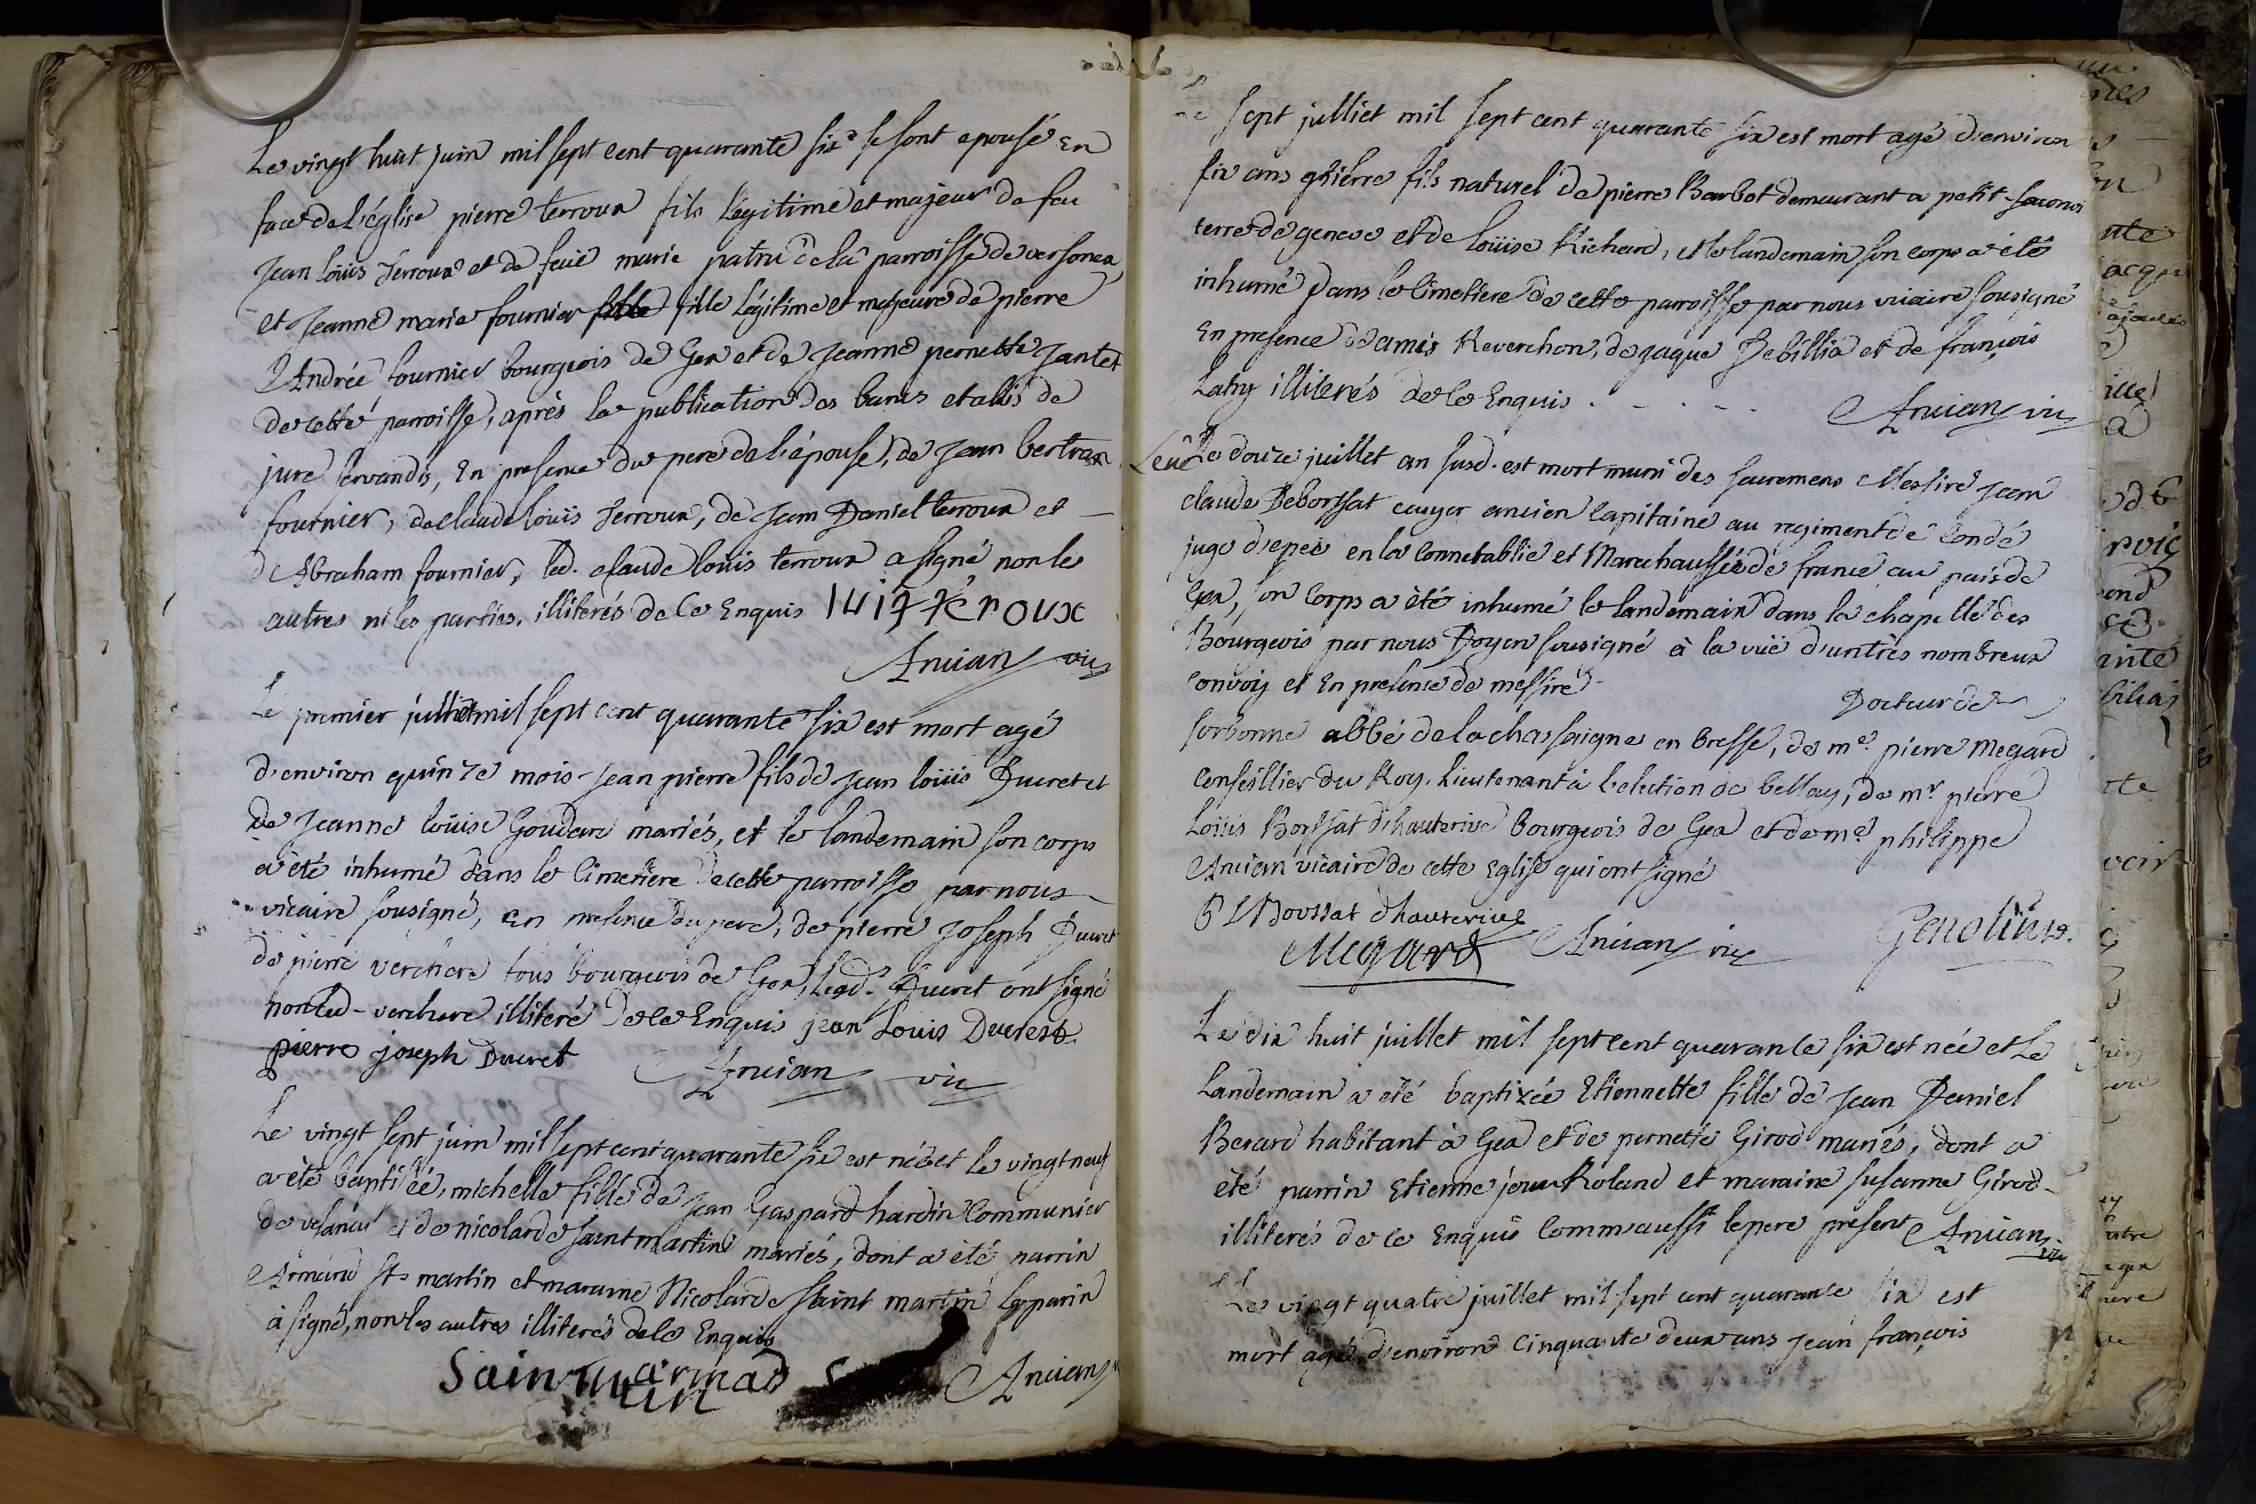 Le vingt huit juin mil sept cent quarante six se sont epousé en
face de l'église pierre terroux fils légitime et majeur de feu
jean loüis terroux et de feüe marie patru de la parroisse de versonex
et jeanne marie fournier fille légitime et majeure de pierre
André fournier bourgeois de Gex et de jeanne pernette jantet
de cette parroisse, après la publication des bancs et alüs de
jure servandis, en presence du pere de l'épouse, de jean bertran
fournier, de claude loüis terroux, de jean Daniel terroux et
d'Abraham fournier, led. claude loüis terroux a signé non les
autres ni les parties, illiterés de ce enquis teroux
Anvian vic
Le premier julliet mil sept cent quarante six est mort agé
d'environ quinze mois jean pierre fils de jean loüis Ducret et
de jeanne loüise Goudard mariés, et le landemain son corps
a été inhumé dans le cimetière de cette parroisse par nous
vicaire sousigné, en presence du pere, de pierre joseph Ducret
de pierre verchere tous bourgeois de Gex, lesd. Ducret ont signé
non led. verchere illiteré de ce enquis jean Louis Ducrest
pierre joseph Ducret Anvian vic
Le vingt sept juin mil sept cent quarante six est née et le vingt neuf
a été baptisée, michelle fille de jean Gaspard hardin communier
de vesancy et de nicolarde saint martin mariés, dont a été parrin
Armand st martin et maraine Nicolarde saint martin le parin
à signé, non les autres illiterés de ce enquis
Sain martin armad Anvian
Le sept julliet mil sept cent quarante six est mort agé d'environ
six ans pierre fils naturel de pierre Barbot demeurant a petit-saconex
terre de geneve et de loüise Richard, et le landemain son corps a été
inhumé dans le cimetiere de cette parroisse par nous vicaire sousigné
en presence d'amés Reverchon, de jaque Debillia et de françois
Lahy illiterés de ce enquis . - . - . Anvian vic
Le douze juillet an susd. est mort muni des sacremens Messire jean
claude Deborssat ecuyer ancien capitaine au regiment de Condé
juge d'epeé en la connetablie et Marechaussée de france au païs de
Gex, son corps a été inhumé le landemain dans la chapelle des
Bourgeois par nous Doyen sousigné à la vuë d'un très nombreux
convoy et en presence de messire
Docteur de
sorbonne abbé de la chassaigne en bresse, de me. pierre megard
conseillier du Roy, lieutenant à l'election de bellay, de mr pierre
Loüis Borssat d'hauterive bourgeois de Gex et de me. philippe
Anvian vicaire de cette Eglise qui ont signé
P L Borssat d'hauterive
Megard Anvian vic
Le dix huit juillet mil sept cent quarante six est née et le
landemain a été baptizée Etiennette fille de jean Daniel
Berard habitant à Gex et de pernette Girod mariés, dont a
été parrin Etienne jean Roland et maraine susanne Girod
illiterés de ce enquis comme aussi le pere present Anvian vic
Le vingt quatre juillet mil sept cent quarante six est
mort agé d'environ cinquante deux ans jean françois